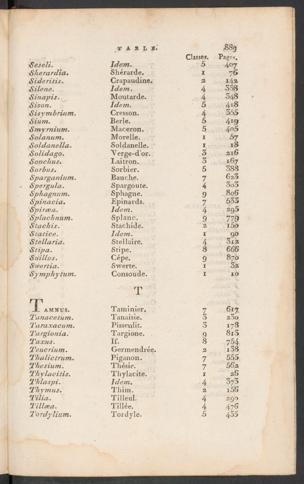 TABLE. 889
Classes. Pages.
Seseli. Idem. 5 407
Sherardia. Shérarde. 1 76
Sideritis. Crapaudine. 2 142
Silene. Idem. 4 358
Sinapis. Moutarde. 4 348
Sison. Idem. 5 418
Sisymbrium. Cresson. 4 355
Sium. Berle. 5 419
Smyrnium. Maceron. 5 405
Solanum. Morelle. 1 57
Soldanella. Soldanelle. 1 18
Solidago. Verge-d'or. 3 216
Sonchus. Laitron. 3 167
Sorbus. Sorbier. 5 388
Sparganium. Bauche. 7 623
Spergula. Spargoute. 4 303
Sphagnum. Sphagne. 9 806
Spinacia. Epinards. 7 583
Spiræa. Idem. 4 295
Splachnum. Splanc. 9 779
Stachis. Stachide. 2 150
Statice. Idem. 1 90
Stellaria. Stellaire. 4 312
Stipa. Stipe. 8 666
Suillos. Cèpe. 9 870
Swertia. Swerte. 1 32
Symphytum. Consoude. 1 10
T
TAMNUS. Taminier. 7 617
Tanacetum. Tanaisie. 3 230
Taraxacum. Pissenlit. 3 178
Targionia. Targione. 9 813
Taxus. If. 8 754
Teucrium. Germendrée. 2 138
Thalictrum. Pigamon. 7 555
Thesium. Thésie. 7 562
Thylacitis. Thylacite. 1 26
Thlaspi. Idem. 4 373
Thymus. Thim. 2 156
Tilia. Tilleul. 4 290
Tillæa. Tillée. 4 476
Tordylium. Tordyle. 5 435